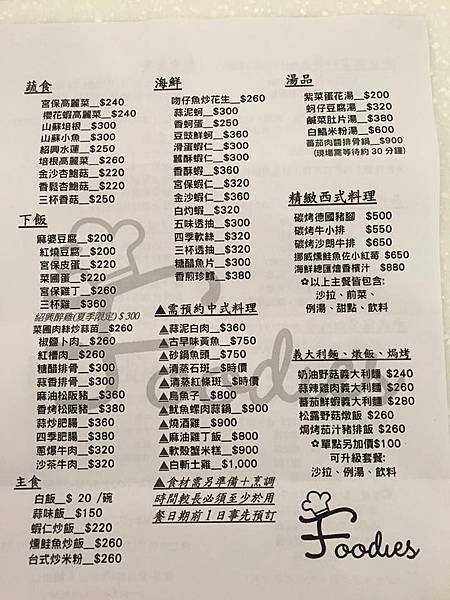 蔬食
宮保高麗菜__$240
櫻花蝦高麗菜__$240
山蘇培根__$300
山蘇小魚__$300
紹興水蓮__$250
培根高麗菜__$260
金沙杏鮑菇__$220
香鬆杏鮑菇__$220
三杯香菇__$250
下飯
麻婆豆腐__$200
紅燒豆腐__$200
宮保皮蛋__$220
菜圃蛋__$220
宮保雞丁__$260
三杯雞__$360
紹興醉雞(夏季限定) $300
菜圃肉絲炒蒜苗__$260
椒鹽卜肉__$260
紅槽肉__$260
糖醋排骨__$300
蒜香排骨__$300
麻油松阪豬__$360
香烤松阪豬__$380
蒜炒肥腸__$360
四季肥腸__$360
蔥爆牛肉__$320
沙茶牛肉__$320
主食
白飯__$ 20 /碗
蒜味飯__$150
蝦仁炒飯__$220
燻鮭魚炒飯__$260
台式炒米粉__$260
海鮮
吻仔魚炒花生__$260
蒜泥蚵__$300
香蚵蛋__$250
豆豉鮮蚵__$360
滑蛋蝦仁__$300
蠶酥蝦仁__$300
香酥蝦__$360
宮保蝦仁__$320
金沙蝦仁__$360
白灼蝦__$320
五味透抽__$300
四季軟絲__$320
三杯透抽__$320
糖醋魚片__$300
香煎珍鱈__$380
▲需預約中式料理
▲蒜泥白肉__$360
▲古早味黃魚__$750
▲砂鍋魚頭__$750
▲清蒸石斑__$時價
▲清蒸紅條斑__$時價
▲烏魚子__$800
▲魷魚螺肉蒜鍋__$900
▲燒酒雞__$900
▲麻油雞丁飯__$800
▲軟殼蟹米糕__$900
▲白斬土雞__$1,000
▲食材需另準備+烹調
時間較長必須至少於用
餐日期前1日事先預訂
湯品
紫菜蛋花湯__$200
蚵仔豆腐湯__$320
鹹菜肚片湯__$380
白鯧米粉湯__$600
蕃茄肉醬排骨鍋__$900
(現場需等待約 30 分鐘)
精緻西式料理
碳烤德國豬腳 $500
碳烤牛小排 $550
碳烤沙朗牛排 $650
挪威燻鮭魚佐小紅莓 $650
海鮮總匯燴香檳汁 $880
✿以上主餐皆包含:
沙拉、前菜、
例湯、甜點、飲料
義大利麵、燉飯、焗烤
奶油野菇義大利麵 $240
蒜辣雞肉義大利麵 $260
蕃茄鮮蝦義大利麵 $280
松露野菇燉飯 $260
焗烤茄汁豬排飯 $260
✿單點另加價$100
可升級套餐:
沙拉、例湯、飲料
Foodies